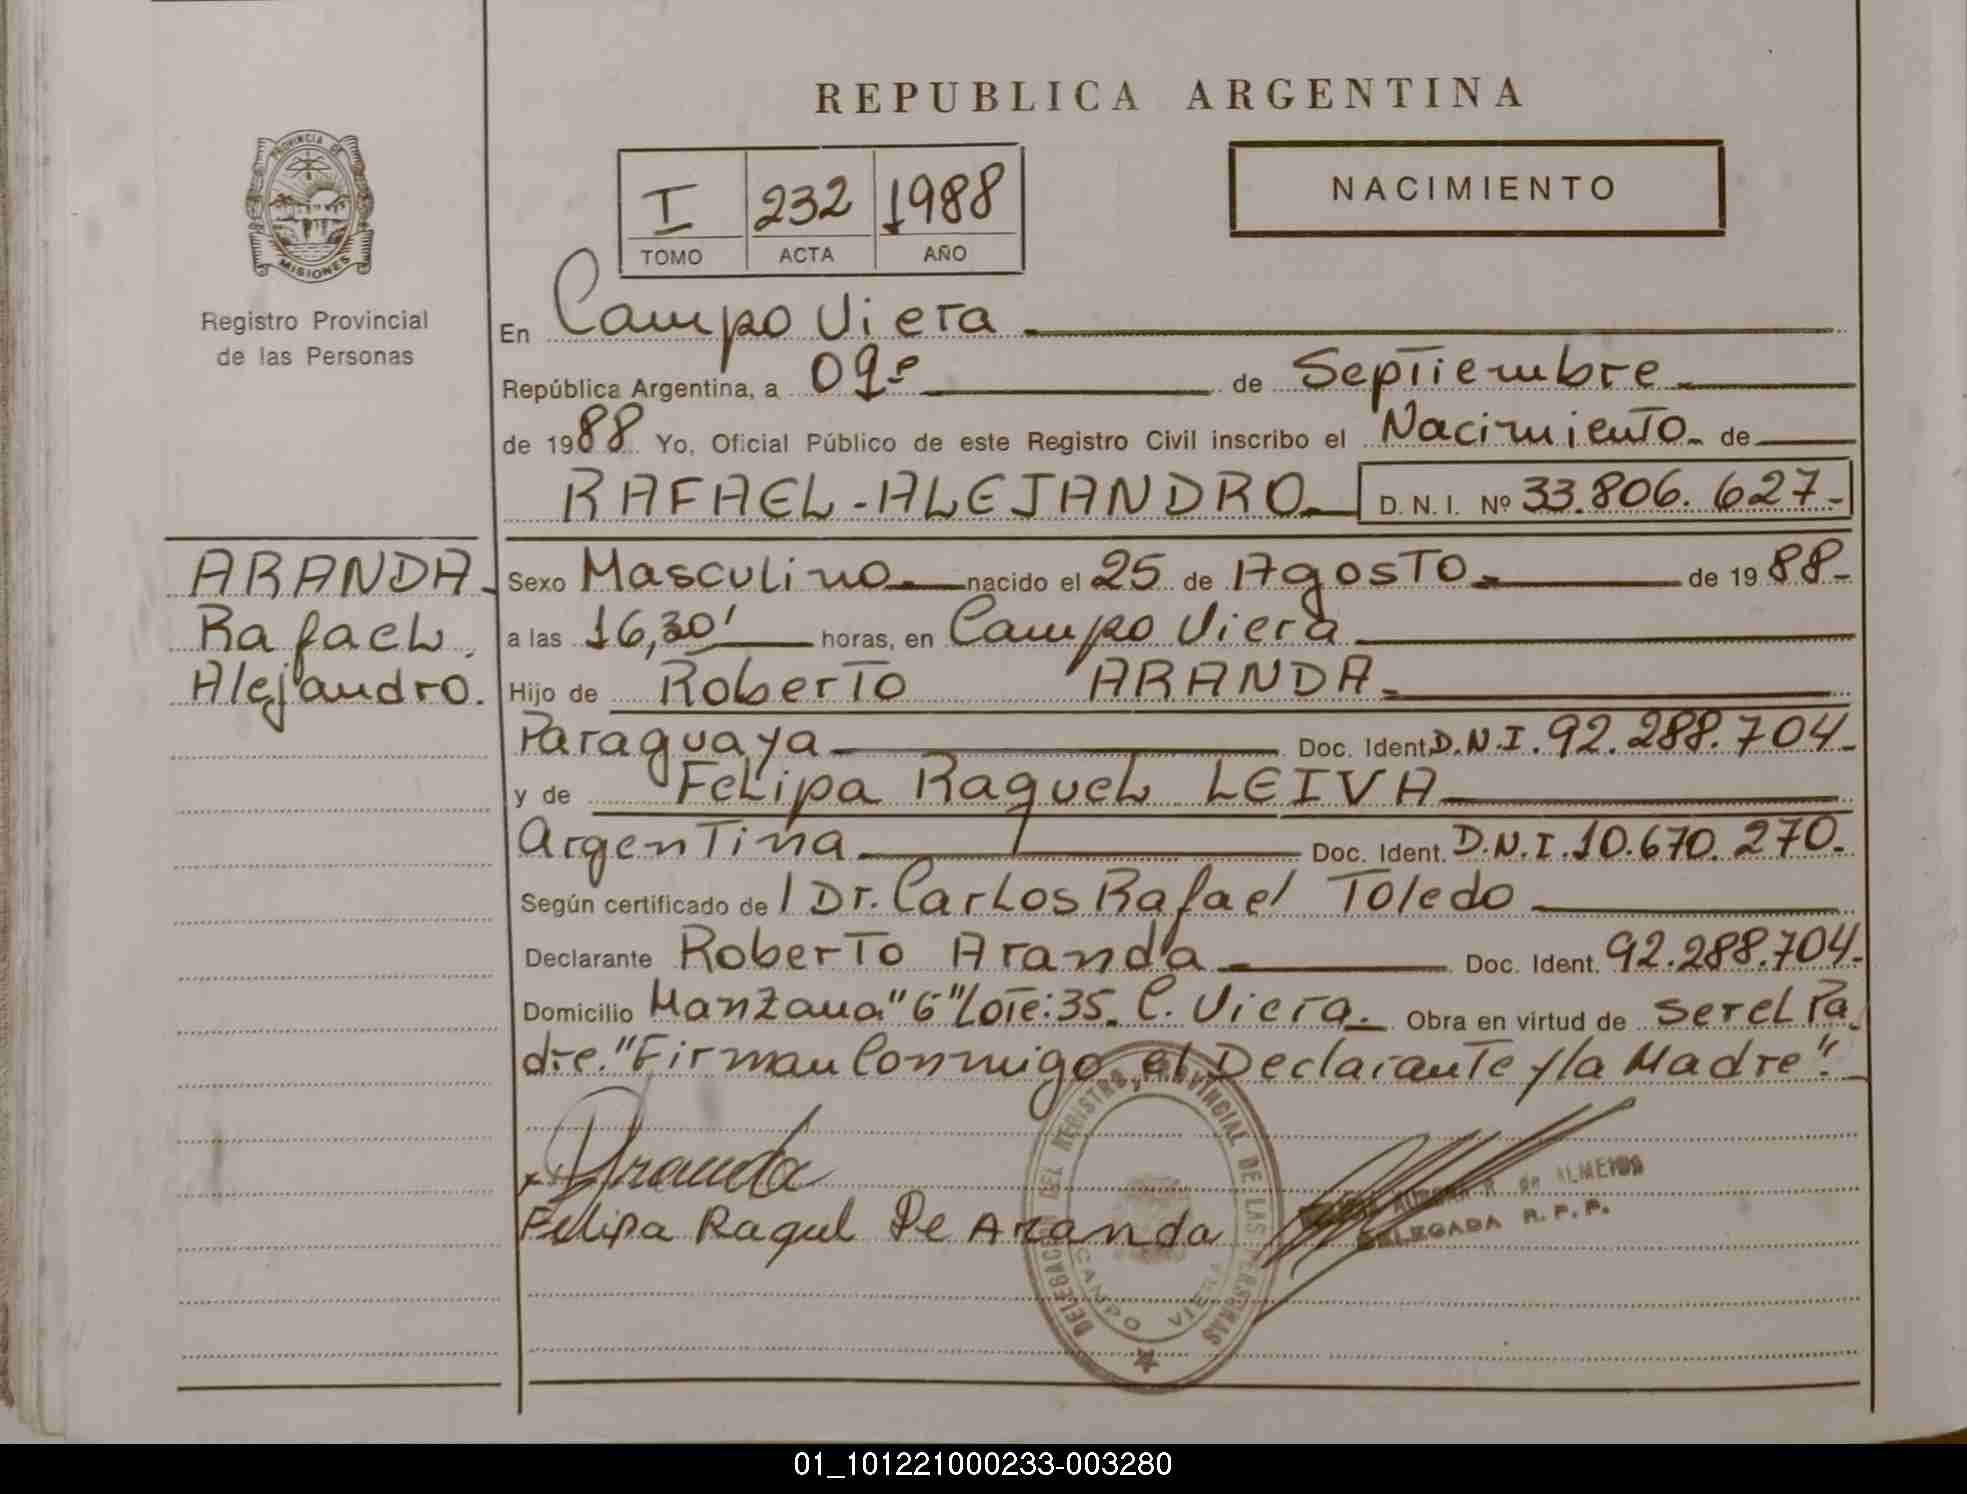 REPUBLICA ARGENTINA
PROVINCIA DE
MISIONES
Registro Provincial
de las Personas
I 232 1988
TOMO ACTA AÑO
NACIMIENTO
En Campo Viera
República Argentina, a 09º de Septiembre
de 1988 Yo, Oficial Público de este Registro Civil inscribo el Nacimiento de
RAFAEL-ALEJANDRO D. N. I. Nº 33.806.627-
ARANDA
Rafael
Alejandro.
Sexo Masculino nacido el 25 de Agosto de 1988-
a las 16,30' horas, en Campo Viera
Hijo de Roberto ARANDA
Paraguaya Doc. Ident. D.N.I. 92.288.704-
y de Felipa Raquel LEIVA
Argentina Doc. Ident. D.N.I. 10.670.270-
Según certificado de l Dr. Carlos Rafael Toledo
Declarante Roberto Aranda Doc. Ident. 92.288.704-
Domicilio Manzana "6" Lote: 35. C. Viera. Obra en virtud de ser el Pa
dre. "Firman Conmigo el Declarante y la Madre".
Aranda
Felipa Raqul De Aranda
DELEGACION DEL REGISTRO PROVINCIAL DE LAS PERSONAS
CAMPO VIERA
de ALMEIDA
DELEGADA R. P. P.
01_101221000233-003280